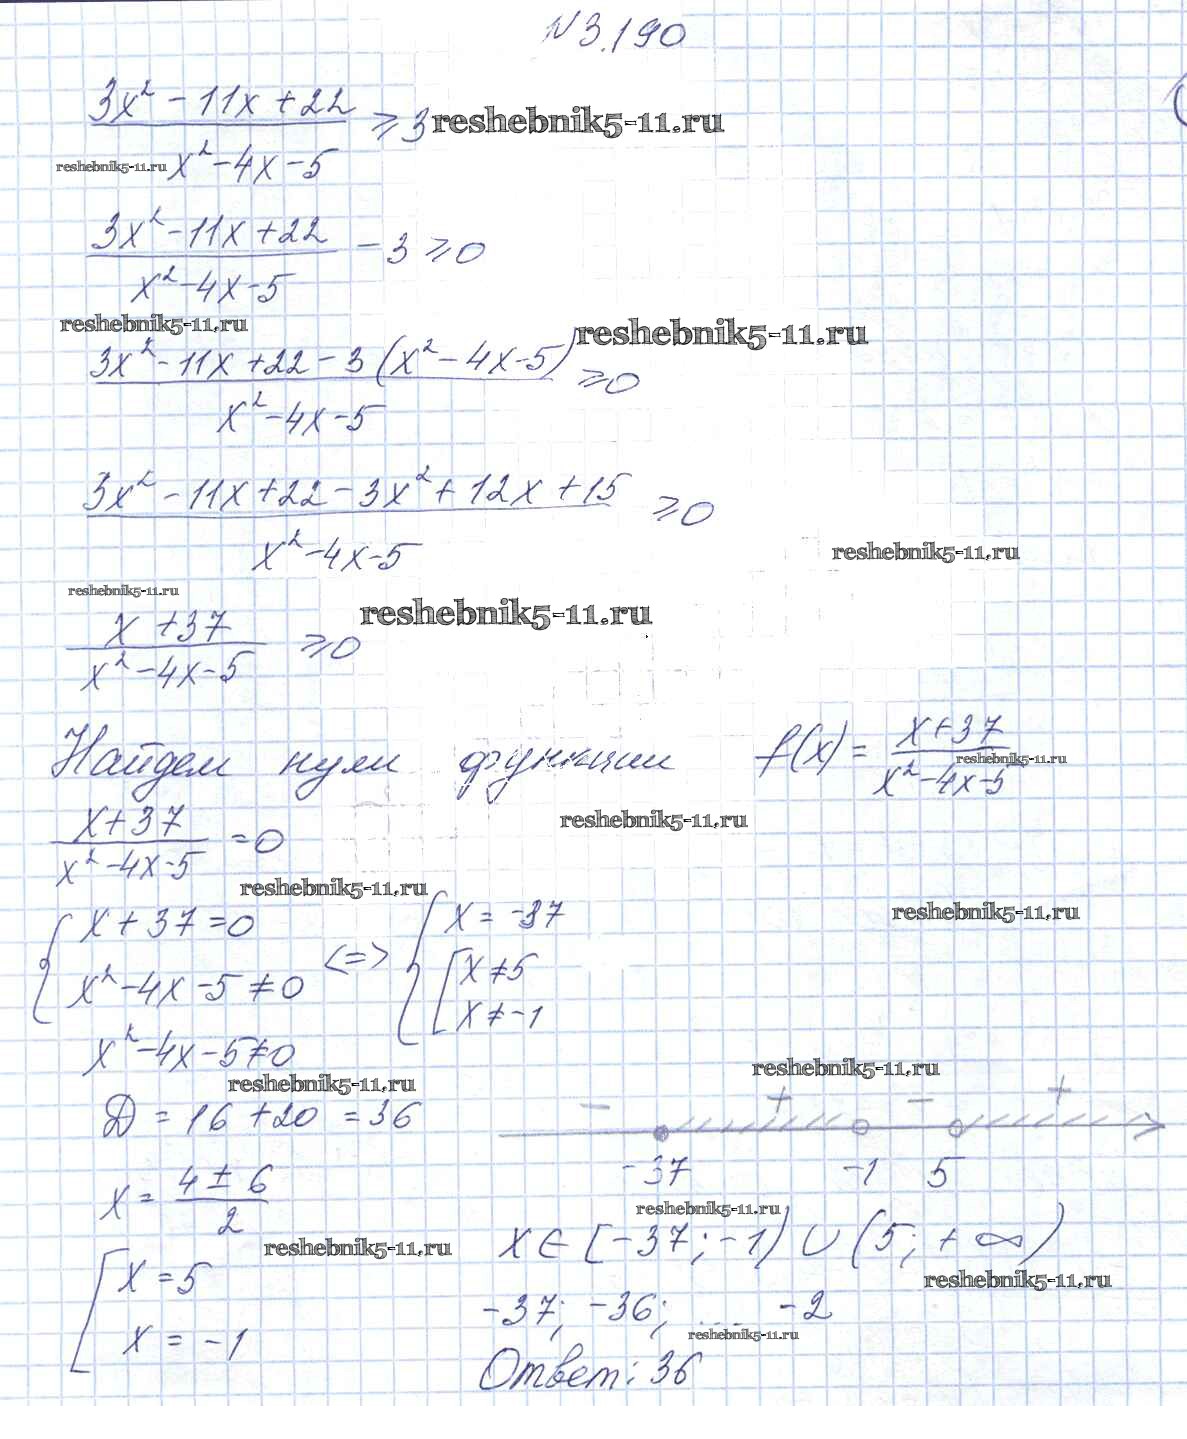 №3.190
3x² - 11x + 22
≥ 3 reshebnik5-11.ru
reshebnik5-11.ru x² - 4x - 5
3x² - 11x + 22
- 3 ≥ 0
x² - 4x - 5
reshebnik5-11.ru
reshebnik5-11.ru
3x² - 11x + 22 - 3 (x² - 4x - 5)
≥ 0
x² - 4x - 5
3x² - 11x + 22 - 3x² + 12x + 15
≥ 0
x² - 4x - 5
reshebnik5-11.ru
reshebnik5-11.ru
reshebnik5-11.ru
x + 37
≥ 0
x² - 4x - 5
Найдем нули функции f(x) = x + 37
reshebnik5-11.ru
x² - 4x - 5
x + 37
= 0
x² - 4x - 5
reshebnik5-11.ru
reshebnik5-11.ru
reshebnik5-11.ru
{ x + 37 = 0
x² - 4x - 5 ≠ 0
<=>
{ x = -37
[ x ≠ 5
x ≠ -1
x² - 4x - 5 ≠ 0
reshebnik5-11.ru
reshebnik5-11.ru
Д = 16 + 20 = 36
- + - +
-37 -1 5
x = 4 ± 6
2
reshebnik5-11.ru
reshebnik5-11.ru
x ∈ [-37; -1) ∪ (5; + ∞)
reshebnik5-11.ru
[ x = 5
x = -1
-37; -36; .... -2
reshebnik5-11.ru
Ответ: 36